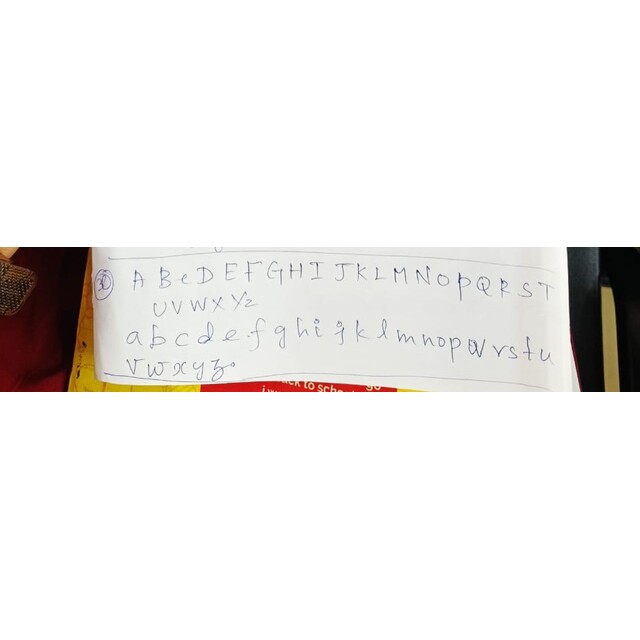 30 A B C D E F G H I J K L M N O P Q R S T
U V W X Y Z
a b c d e f g h i j k l m n o p q r s t u
v w x y z.
ck to scho
go